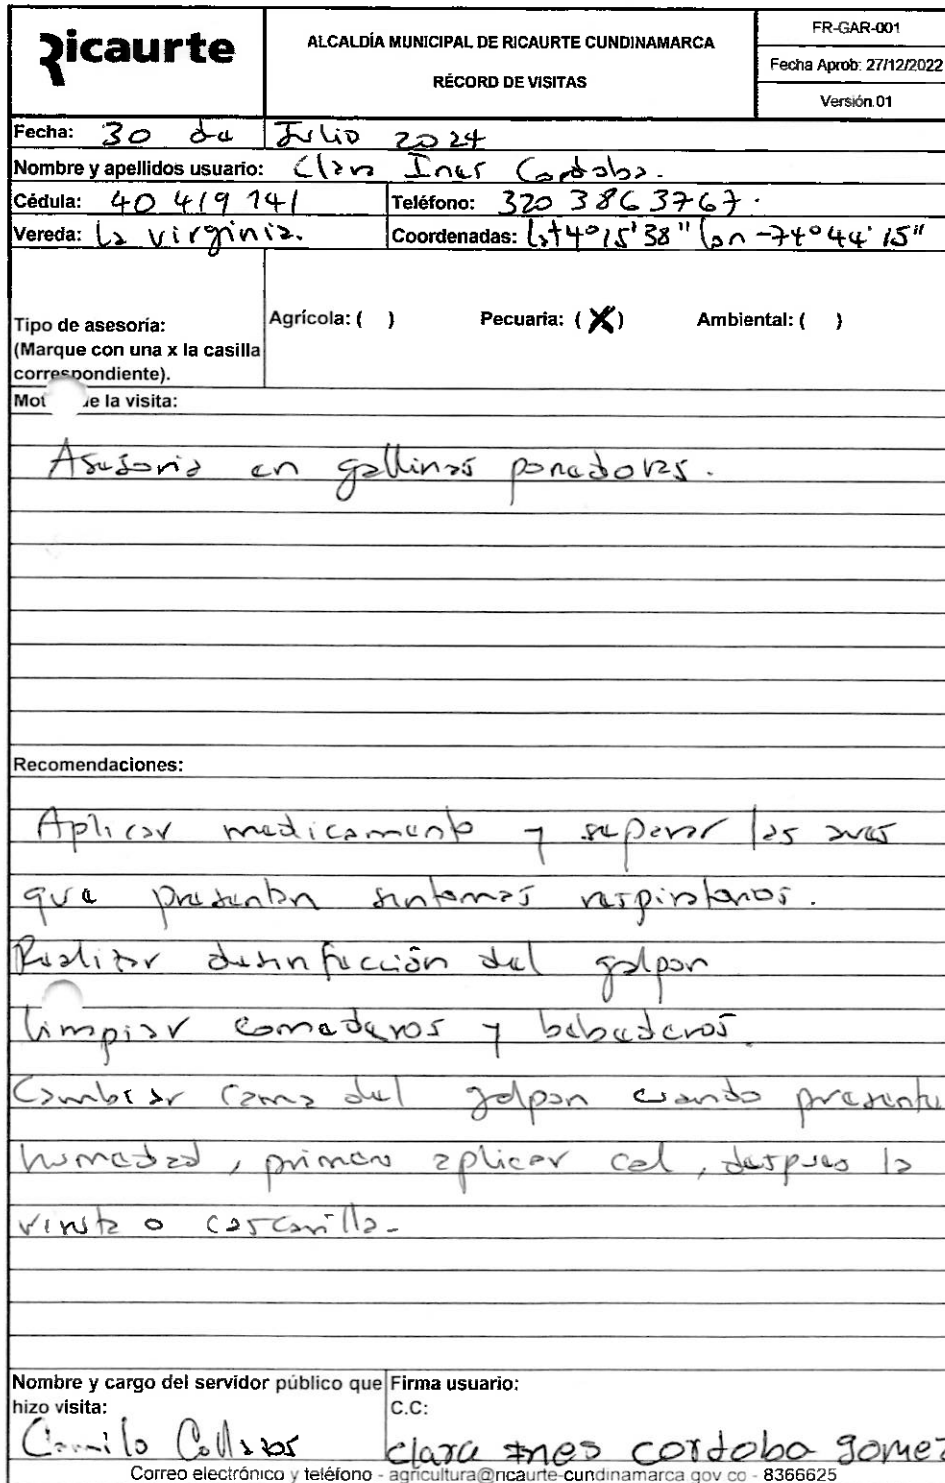 Ricaurte
ALCALDÍA MUNICIPAL DE RICAURTE CUNDINAMARCA
RÉCORD DE VISITAS
FR-GAR-001
Fecha Aprob: 27/12/2022
Versión.01
Fecha: 30 de Julio 2024
Nombre y apellidos usuario: Clara Ines Cordoba.
Cédula: 40 419 141 Teléfono: 320 386 3767.
Vereda: la virginia. Coordenadas: lat 4°15'38" lon -74°44'15"
Tipo de asesoría:
(Marque con una x la casilla
correspondiente).
Agrícola: ( ) Pecuaria: (X) Ambiental: ( )
Mot de la visita:
Asesoria en gallinas ponedoras.
Recomendaciones:
Aplicar medicamento y separar las aves
que presentan sintomas respiratorios.
Realizar desinfección del galpon
limpiar comederos y bebederos.
Cambiar cama del galpon cuando presente
humedad, primero aplicar cal, despues la
viruta o cascarilla.
Nombre y cargo del servidor público que
hizo visita:
Camilo Collazos
Firma usuario:
C.C:
clara ines cordoba gomez
Correo electrónico y teléfono - agricultura@ricaurte-cundinamarca.gov.co - 8366625